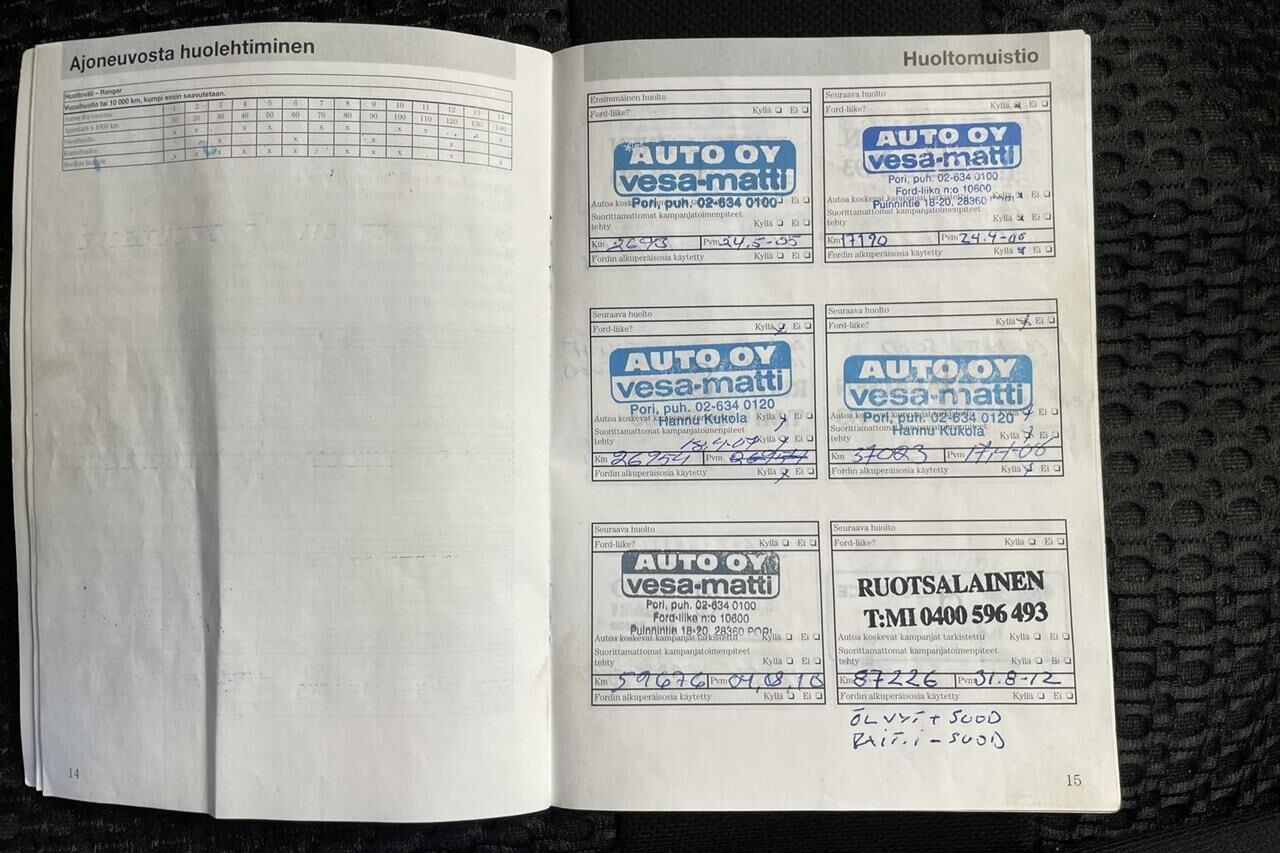 Ajoneuvosta huolehtiminen
Huoltoväli – Ranger
Vuosihuolto tai 10 000 km, kumpi ensin saavutetaan.
1 2 3 4 5 6 7 8 9 10 11 12 13 14
Ajomäärä x 1000 km 10 20 30 40 50 60 70 80 90 100 110 120 130 140
Vuosihuolto
14
Huoltomuistio
Ensimmäinen huolto
Ford-liike? Kyllä ❏ Ei ❏
AUTO OY
vesa-matti
Pori, puh. 02-634 0100
Autoa koskevat kampanjat Ei ❏
Suorittamattomat kampanjatoimenpiteet
tehty Kyllä ❏ Ei ❏
Km 2693 Pvm 24.5-05
Fordin alkuperäisosia käytetty Kyllä ❏ Ei ❏
Seuraava huolto
Ford-liike? Kyllä x Ei ❏
AUTO OY
vesa-matti
Pori, puh. 02-634 0100
Ford-liike n:o 10600
Puinnintie 18-20, 28360
Autoa koskevat kampanjat tarkistettu Kyllä x Ei ❏
Suorittamattomat kampanjatoimenpiteet
tehty Kyllä x Ei ❏
Km 17190 Pvm 24.4-06
Fordin alkuperäisosia käytetty Kyllä x Ei ❏
Seuraava huolto
Ford-liike? Kyllä x Ei ❏
AUTO OY
vesa-matti
Pori, puh. 02-634 0120
Hannu Kukola
Autoa koskevat Kyllä x Ei ❏
Suorittamattomat kampanjatoimenpiteet
tehty 18.4-07 Kyllä x Ei ❏
Km 26954 Pvm 26954
Fordin alkuperäisosia käytetty Kyllä x Ei ❏
Seuraava huolto
Ford-liike? Kyllä x Ei ❏
AUTO OY
vesa-matti
Autoa koskevat kampanjat tarkistettu Kyllä x Ei ❏
Pori, puh. 02-634 0120
Suorittamattomat kampanjatoimenpiteet
Hannu Kukola
tehty Kyllä x Ei ❏
Km 37083 Pvm
Fordin alkuperäisosia käytetty Kyllä x Ei ❏
Seuraava huolto
Ford-liike? Kyllä ❏ Ei ❏
AUTO OY
vesa-matti
Pori, puh. 02-634 0100
Ford-liike n:o 10600
Puinnintie 18-20, 28360 PORI
Autoa koskevat kampanjat tarkistettu Kyllä ❏ Ei ❏
Suorittamattomat kampanjatoimenpiteet
tehty Kyllä ❏ Ei ❏
Km 59676 Pvm 04.08.10
Fordin alkuperäisosia käytetty Kyllä ❏ Ei ❏
Seuraava huolto
Ford-liike? Kyllä ❏ Ei ❏
RUOTSALAINEN
T:MI 0400 596 493
Autoa koskevat kampanjat tarkistettu Kyllä ❏ Ei ❏
Suorittamattomat kampanjatoimenpiteet
tehty Kyllä ❏ Ei ❏
Km 87226 Pvm 31.8-12
Fordin alkuperäisosia käytetty Kyllä ❏ Ei ❏
ÖLJYT + SUOD
SUOD
15